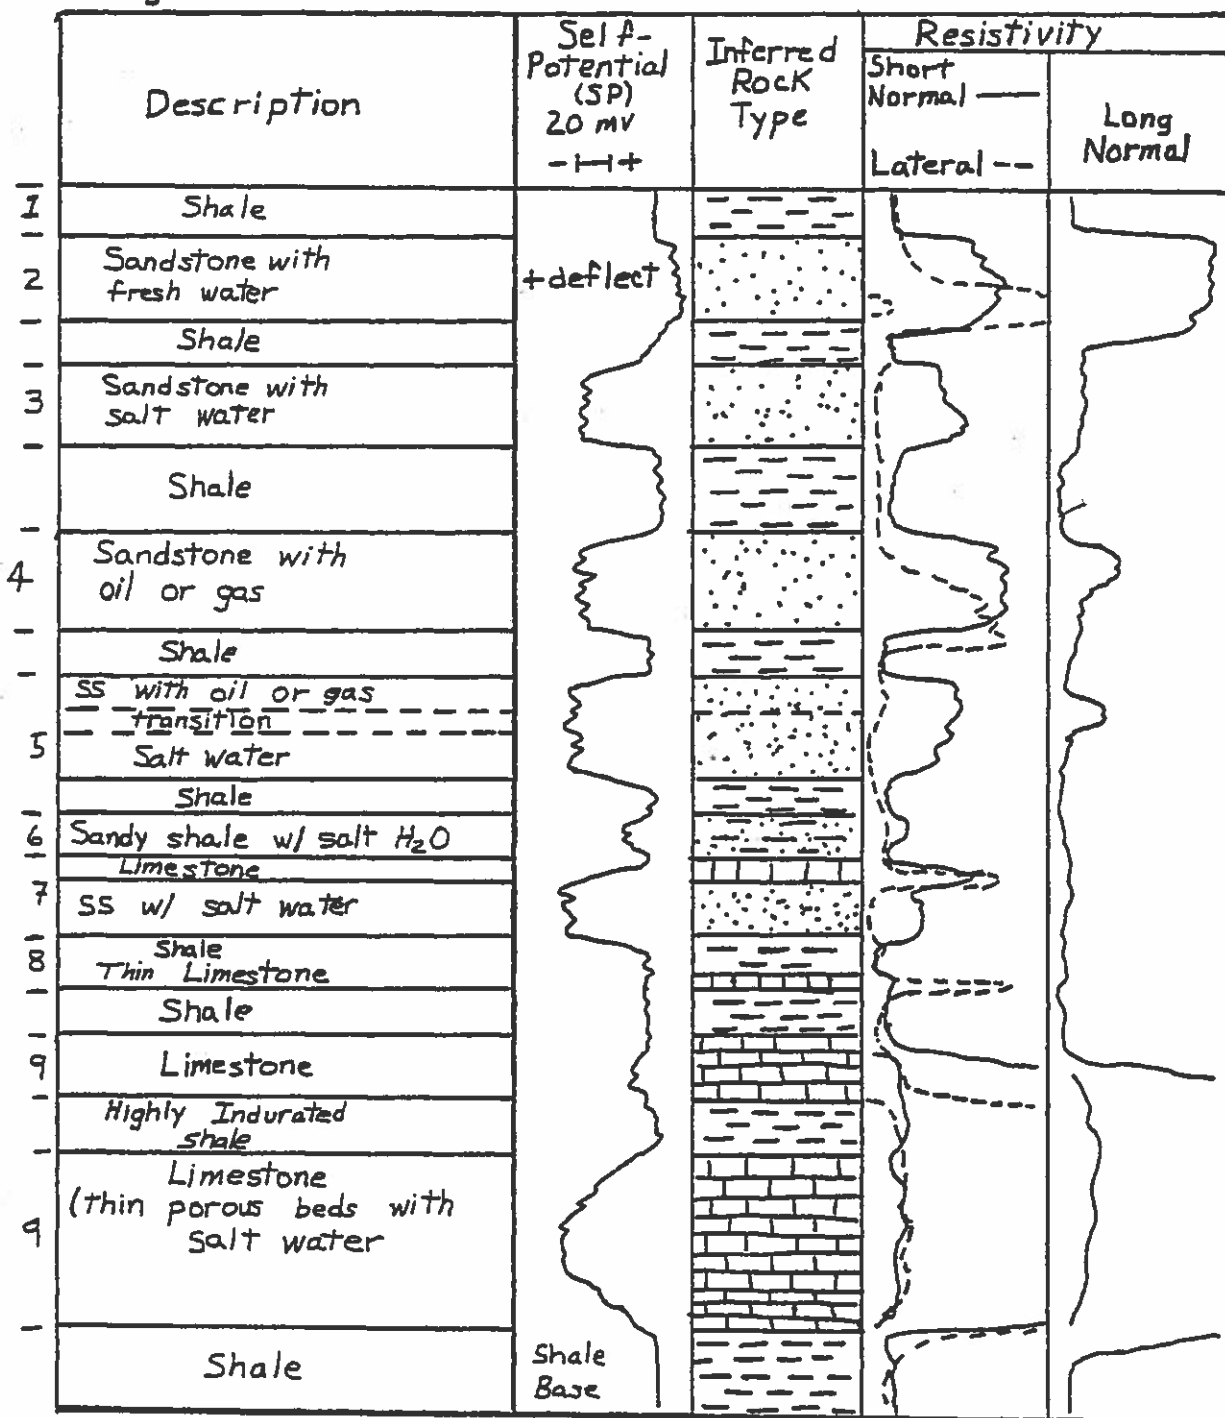 Description
Self-
Potential
(SP)
20 mv
- +
Inferred
Rock
Type
Resistivity
Short
Normal
Lateral
Long
Normal
1
Shale
2
Sandstone with
fresh water
+deflect
Shale
3
Sandstone with
salt water
Shale
4
Sandstone with
oil or gas
Shale
5
SS with oil or gas
transition
Salt water
Shale
6
Sandy shale w/ salt H₂O
Limestone
7
SS w/ salt water
8
Shale
Thin Limestone
Shale
9
Limestone
Highly Indurated
shale
9
Limestone
(thin porous beds with
salt water
Shale
Shale
Base